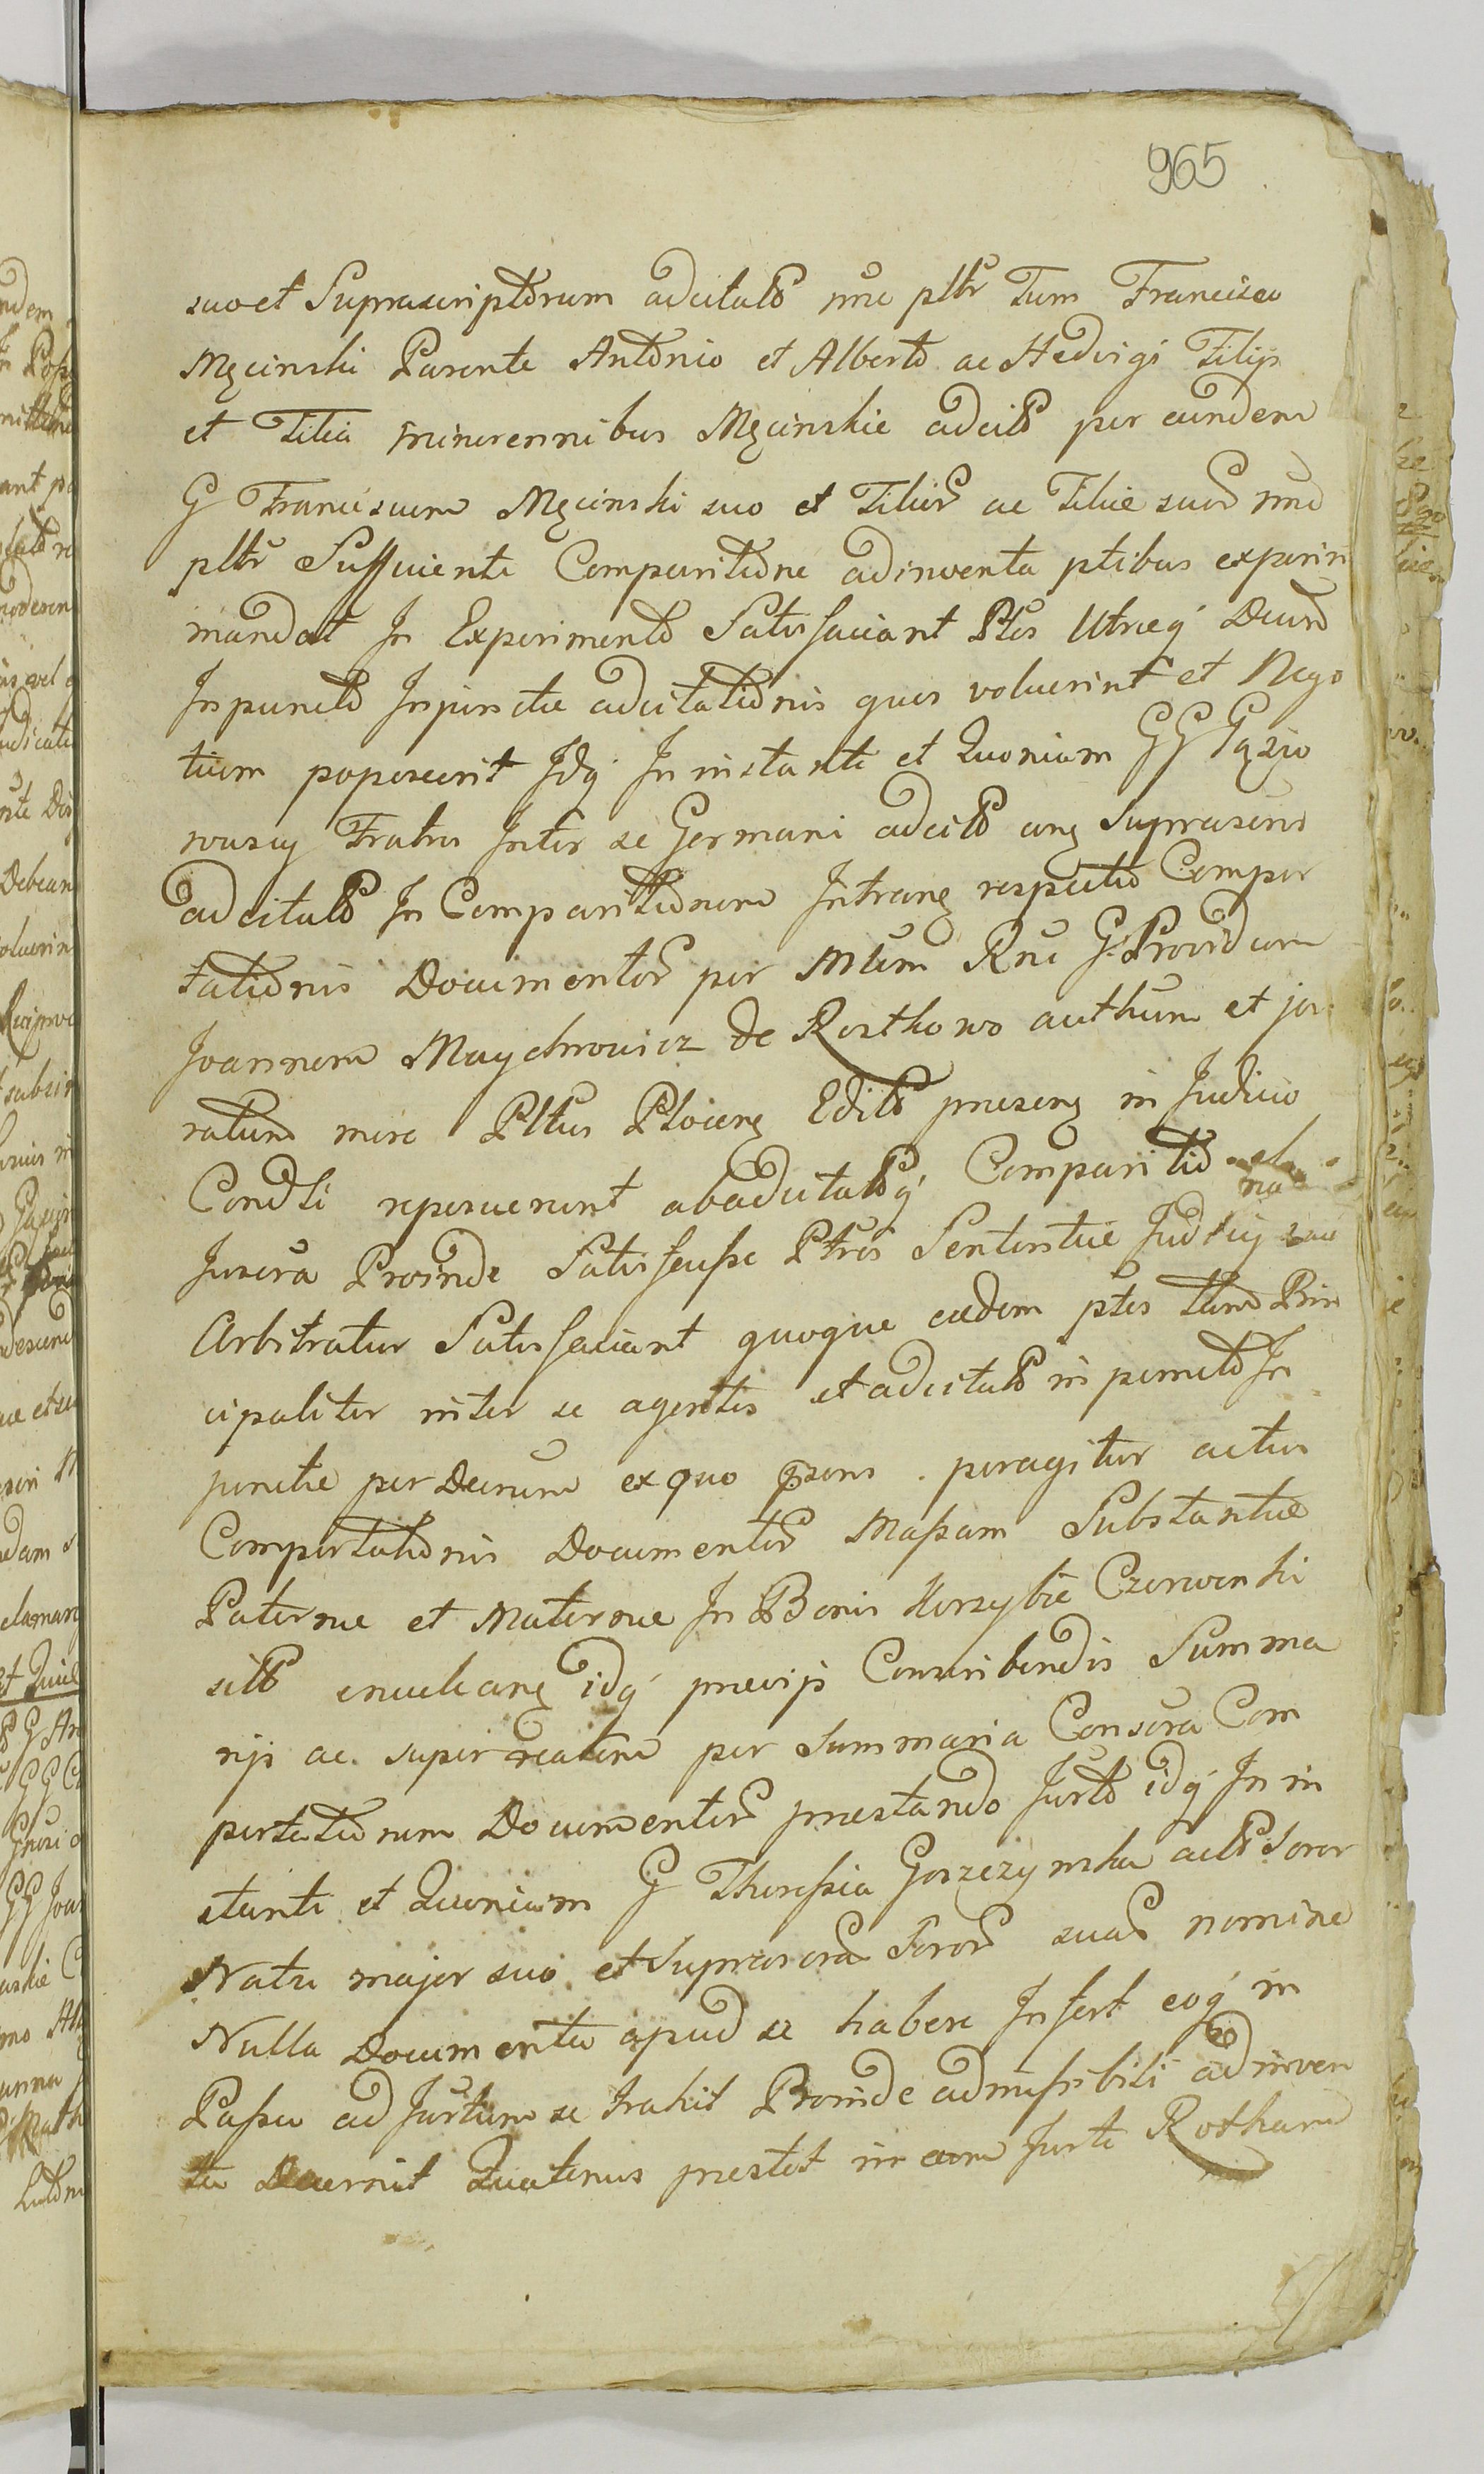 965
suo et Suprascriptorum adcitato nne pltr Tum Francisco
Męcinski Parente Antonio et Alberto ac Hedvigi Filijs
et Filia minorennibus Męcinskie adcito per eundem
G Franciscum Męcinski suo et Filior ac Filie suor nne
pltr Sufficiente Comparitione adinventa ptibus experiri
mandat In Experimento Satisfaciant Ptes Utreq Decreto
In puncto Injuncte adcitationis quos voluerint et Nego
tium poposcerit Idq In instanti et Quoniam GG Gąsio
rowscy Fratres Inter se Germani adcito cum Suprascris
adcitato In Comparitionem Intrang respectu Compor
tationis Documentor per Mlem Rni G Providum
Joannem Maychrowicz de Rostkowo authum et ju
ratum more Pltus Ploceng Edito preseng in Judicio
Condli reposuerunt ab adcitatoq Comparitio
na
Jusera Proinde Satisfeciße Ptros Sententie Judicij sui
Arbitratur Satisfaciant quoque eedem ptes tum Prin
cipaliter inter se agentes et adcitato in puncto In
juncte per Decrum ex quo prsens . peragitur actus
Comportationis Documentor Maßam Substantie
Paterne et Materne In Bonis Korzybie Czerwonki
sito enucleang idq previjs Conscribendis Summa
rijs ac super realem per Summaria Consera Com
portationem Documentor prestando Jurto idq In in
stanti et Quoniam G Thereßia Gorzczynska acto Soror
Natu major suo et Suprasrar Soror suar nomine
Nulla Documenta apud se habere Infert eoq in
Paßu ad Jurtum se trahit Proinde admißibili adinven
ta Decernit Quatenus prestet in eam Jurti Rotham